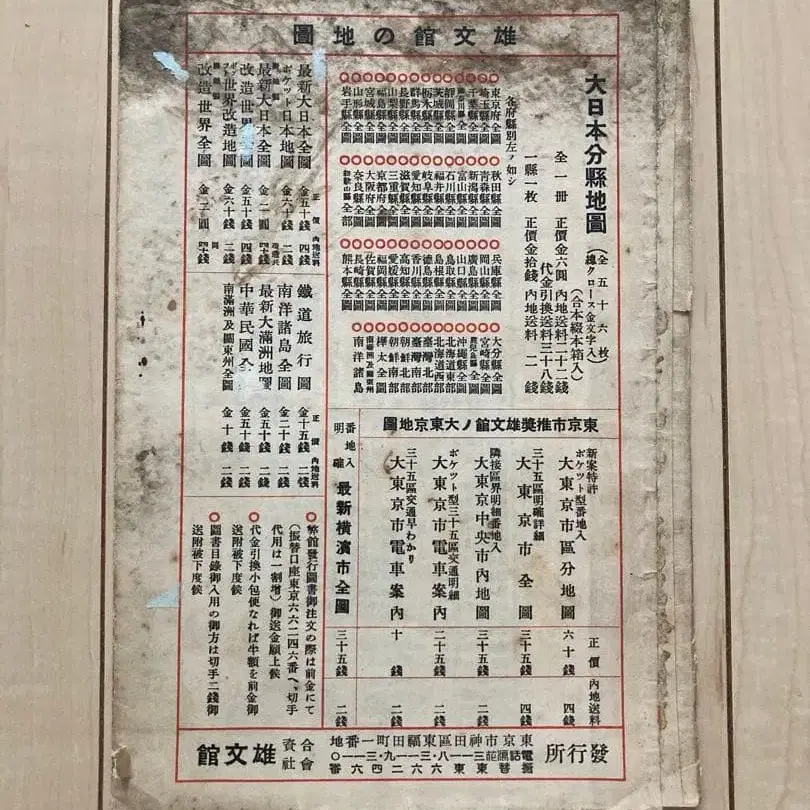 雄文館の地圖
大日本分縣地圖
(全五十六枚)
(總クロース金文字入)
(合本綴本箱入)
全一册 正價金六圓 內地送料二十二錢
代金引換送料三十八錢
一縣一枚 正價金拾錢 內地送料二錢
各府縣別左ノ如シ
○東京府全圖
○埼玉縣全圖
○千葉縣全圖
○神奈川縣全圖
○靜岡縣全圖
○茨城縣全圖
○栃木縣全圖
○群馬縣全圖
○長野縣全圖
○山梨縣全圖
○福島縣全圖
○宮城縣全圖
○山形縣全圖
○岩手縣全圖
○秋田縣全圖
○青森縣全圖
○新潟縣全圖
○富山縣全圖
○石川縣全圖
○福井縣全圖
○岐阜縣全圖
○愛知縣全圖
○滋賀縣全圖
○三重縣全圖
○京都府全圖
○大阪府全圖
○奈良縣全圖
○和歌山縣全部
○兵庫縣全圖
○岡山縣全圖
○廣島縣全圖
○山口縣全圖
○鳥取縣全圖
○島根縣全圖
○德島縣全圖
○香川縣全圖
○高知縣全圖
○愛媛縣全圖
○福岡縣全圖
○佐賀縣全圖
○長崎縣全圖
○熊本縣全圖
○大分縣全圖
○宮崎縣全圖
○鹿兒島縣全圖
○沖繩縣全圖
○北海道東部
○北海道西部
○臺灣北部
○臺灣南部
○朝鮮北部
○朝鮮南部
○樺太全圖
○南滿洲及關東州
○南洋諸島
最新大日本全圖 金五十錢 四錢
ポケツト日本地圖 金六十錢 二錢
最新大日本全圖 金一圓
改造世界全圖 金五十錢 四錢
世界改造地圖 金六十錢 二錢
改造世界全圖 金二圓
正價 內地送料
鐵道旅行圖 金十五錢 二錢
南洋諸島全圖 金二十錢 二錢
最新大滿洲地圖 金五十錢 二錢
中華民國全 金五十錢 二錢
南滿洲及關東州全圖 金十錢 二錢
正價 內地送料
東京市推奬雄文館ノ大東京地圖
正價 內地送料
新案特許
ポケツト型番地入
大東京市區分地圖 六十錢 四錢
三十五區明確詳細
大東京市全圖 三十五錢 四錢
隣接區界明細番地入
大東京中央市內地圖 三十五錢 二錢
ポケツト型三十五區交通明細
大東京市電車案內 二十五錢 二錢
三十五區交通早わかり
大東京市電車案內 十錢 二錢
番地入
明確
最新橫濱市全圖 三十五錢 二錢
○弊館發行圖書御注文の際は前金にて
(振替口座東京六六二四六番へ、切手
代用は一割增)御送金願上候
○代金引換小包便なれば半額を前金御
送附被下度候
○圖書目錄御入用の御方は切手二錢御
送附被下度候
發行所
東京市神田區東福田町一番地
電話浪花三一一八・三一一九・三一一〇
振替東京六六二四六番
合資會社 雄文館